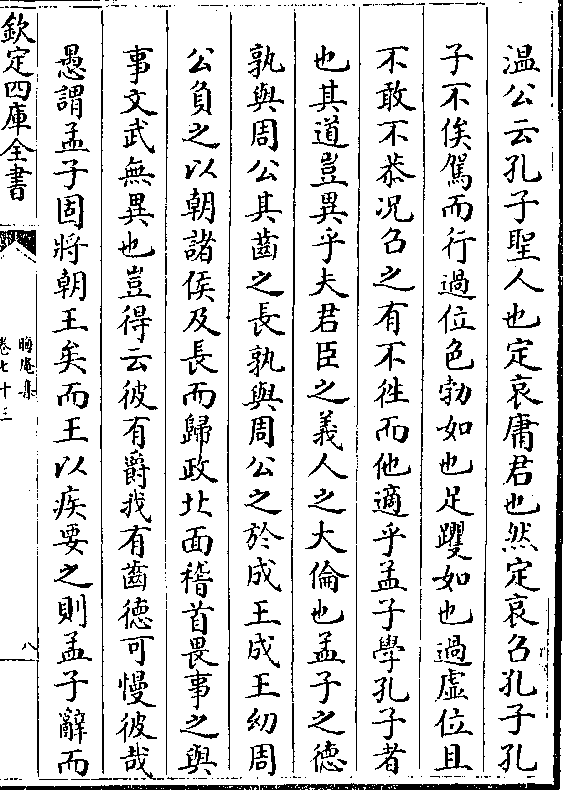 温公云孔子聖人也定哀庸君也然定哀召孔子孔
子不俟駕而行過位色勃如也足躩如也過虚位且
不敢不恭况召之有不徃而他適乎孟子學孔子者
也其道豈異乎夫君臣之義人之大倫也孟子之德
孰與周公其齒之長孰與周公之於成王成王幼周
公負之以朝諸侯及長而歸政北面稽首畏事之與
事文武無異也豈得云彼有爵我有齒德可慢彼哉
愚謂孟子固將朝王矣而王以疾要之則孟子辭而
欽定四庫全書
晦庵集
卷七十三
八